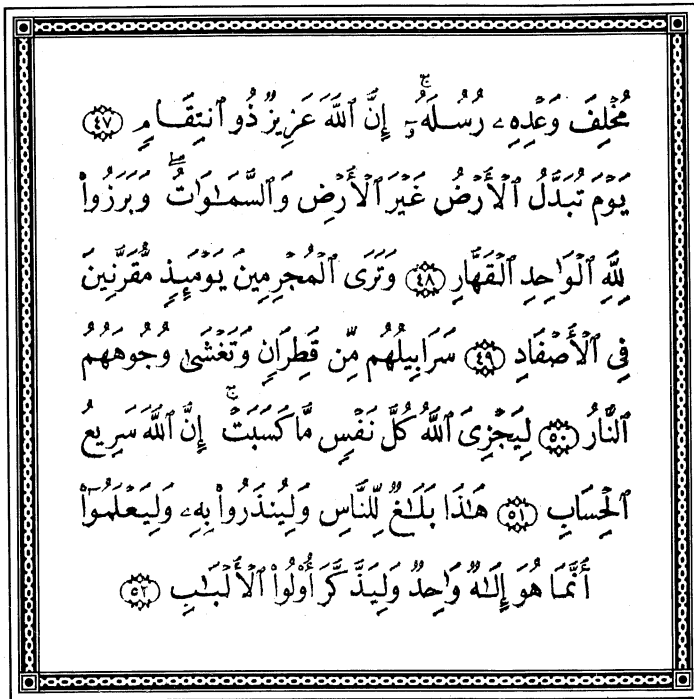 مُخْلِفَ وَعْدِهِۦ رُسُلَهُۥٓ ۗ إِنَّ ٱللَّهَ عَزِيزٌ ذُو ٱنتِقَامٍ ﴿٤٧﴾
يَوْمَ تُبَدَّلُ ٱلْأَرْضُ غَيْرَ ٱلْأَرْضِ وَٱلسَّمَٰوَٰتُ ۖ وَبَرَزُوا۟
لِلَّهِ ٱلْوَٰحِدِ ٱلْقَهَّارِ ﴿٤٨﴾ وَتَرَى ٱلْمُجْرِمِينَ يَوْمَئِذٍ مُّقَرَّنِينَ
فِى ٱلْأَصْفَادِ ﴿٤٩﴾ سَرَابِيلُهُم مِّن قَطِرَانٍ وَتَغْشَىٰ وُجُوهَهُمُ
ٱلنَّارُ ﴿٥٠﴾ لِيَجْزِىَ ٱللَّهُ كُلَّ نَفْسٍ مَّا كَسَبَتْ ۚ إِنَّ ٱللَّهَ سَرِيعُ
ٱلْحِسَابِ ﴿٥١﴾ هَٰذَا بَلَٰغٌ لِّلنَّاسِ وَلِيُنذَرُوا۟ بِهِۦ وَلِيَعْلَمُوٓا۟
أَنَّمَا هُوَ إِلَٰهٌ وَٰحِدٌ وَلِيَذَّكَّرَ أُو۟لُوا۟ ٱلْأَلْبَٰبِ ﴿٥٢﴾